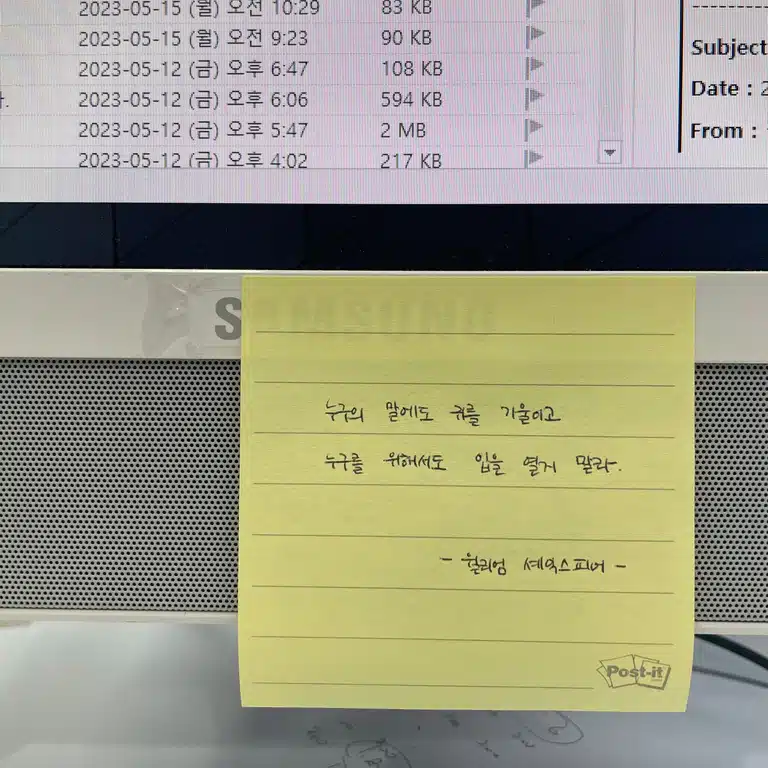 2023-05-15 (월) 오전 10:29 83 KB
2023-05-15 (월) 오전 9:23 90 KB
2023-05-12 (금) 오후 6:47 108 KB
2023-05-12 (금) 오후 6:06 594 KB
2023-05-12 (금) 오후 5:47 2 MB
2023-05-12 (금) 오후 4:02 217 KB
Subject
Date : 2
From :
SAMSUNG
누구의 말에도 귀를 기울이고
누구를 위해서도 입을 열지 말라.
- 윌리엄 셰익스피어 -
Post-it